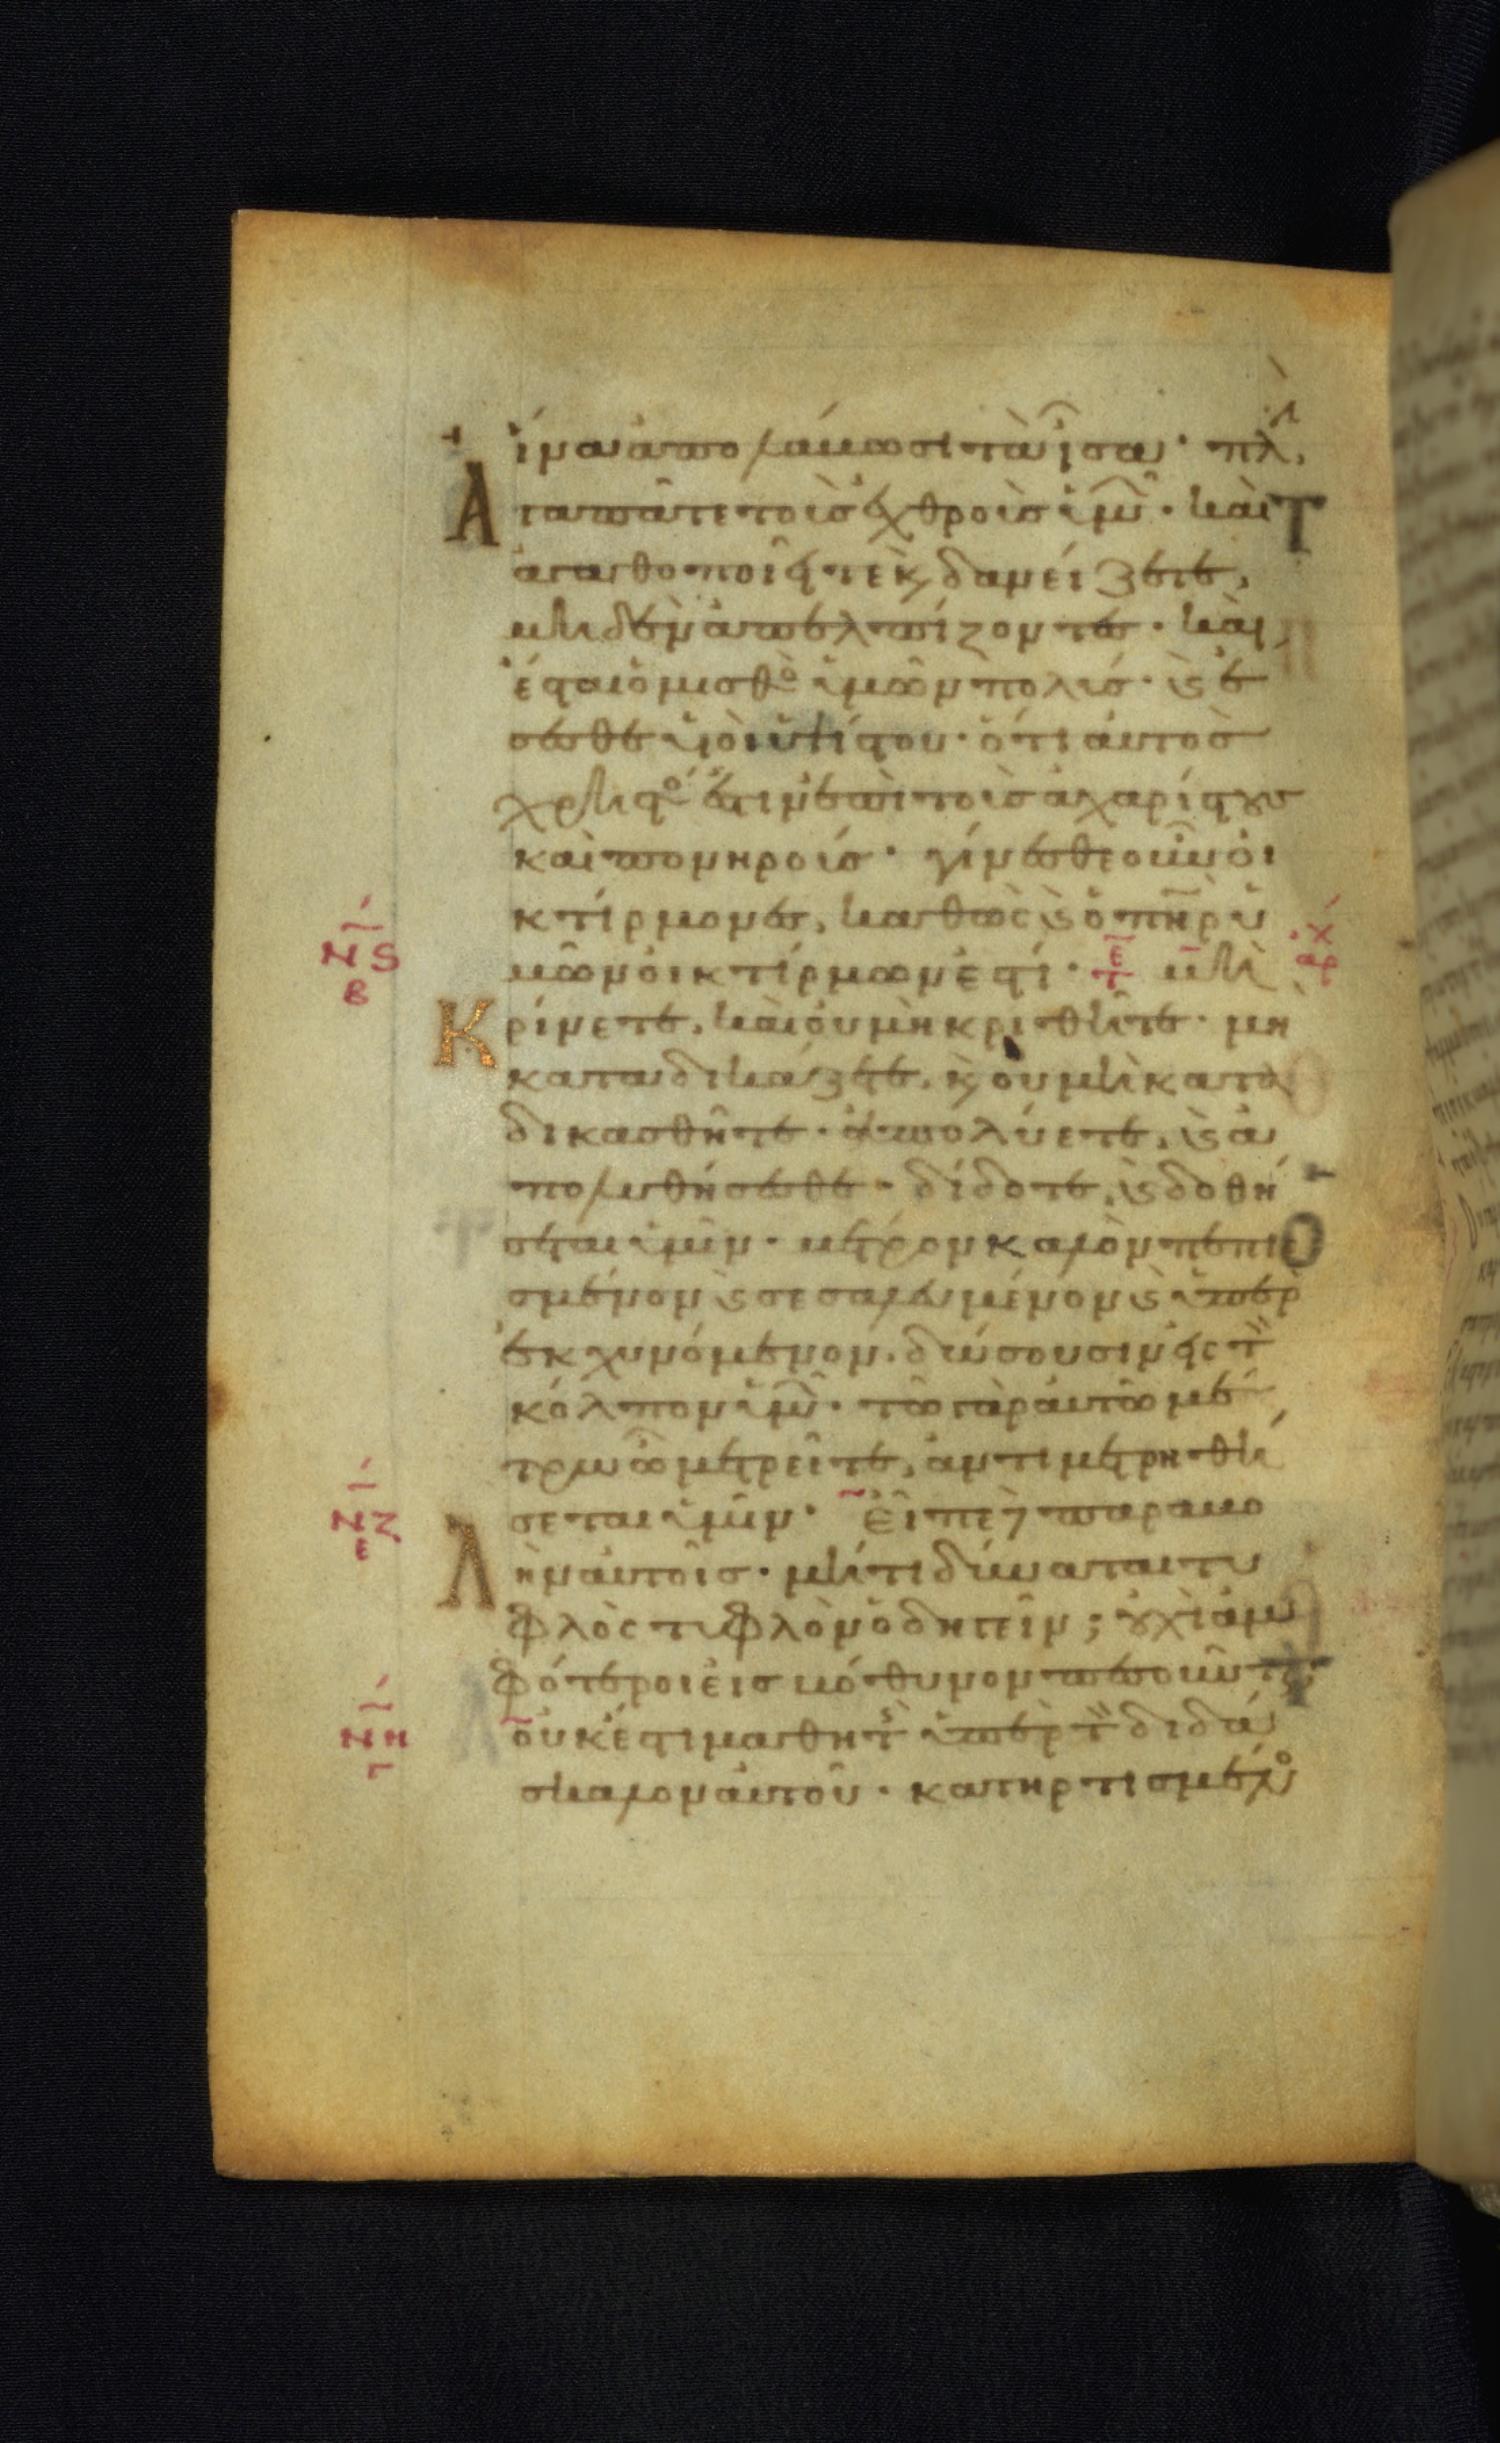 ἵνα ἀπολάβωσι τὰ ἴσα· πλ
Ἀγαπᾶτε τοὺς ἐχθροὺς ὑμῶ̄· καὶ
ἀγαθοποιεῖτε κ̀ δανείζετε,
μηδὲν ἀπελπίζοντες· καὶ
ἔσται ὁ μισθὸ ὑμῶν πολύς· κ̀ ἔ
σεσθε υἱοὶ ὑψίστου· ὅτι αὐτὸς
χρηστό ἐστιν ἐπὶ τοὺς ἀχαρίστους
καὶ πονηρούς· γίνεσθε οὖν οἰ
κτίρμονες, καθὼς κ̀ ὁ π̅η̅ρ ὑ
μῶν οἰκτίρμων ἐστί· μὴ
Κρίνετε, καὶ οὐ μὴ κριθῆτε· μὴ
καταδικάζετε, κ̀ οὐ μὴ κατα
δικασθῆτε· ἀπολύετε, κ̀ ἀ
πολυθήσεσθε· δίδοτε, κ̀ δοθή
σεται ὑμῖν· μέτρον καλὸν πεπιε
σμένον κ̀ σεσαλευμένον κ̀ ὑπερ
εκχυνόμενον, δώσουσιν εἰς τ
κόλπον ὑμῶ̄· τῶ γὰρ αὐτῶ μέ
τρω ῶ μετρεῖτε, ἀντιμετρηθή
σεται ὑμῖν· Εἶπε δὲ παραβο
Λὴν αὐτοῖς· μήτι δύναται τυ
φλὸς τυφλὸν ὁδηγεῖν; οὐχὶ ἀμ
φότεροι εἰς βόθυνον πεσοῦντ
οὐκ ἔστι μαθητ ὑπὲρ τ διδά
σκαλον αὐτοῦ· κατηρτισμένο
ΝϚ
Β
ΝΖ
Ε
ΝΗ
Γ